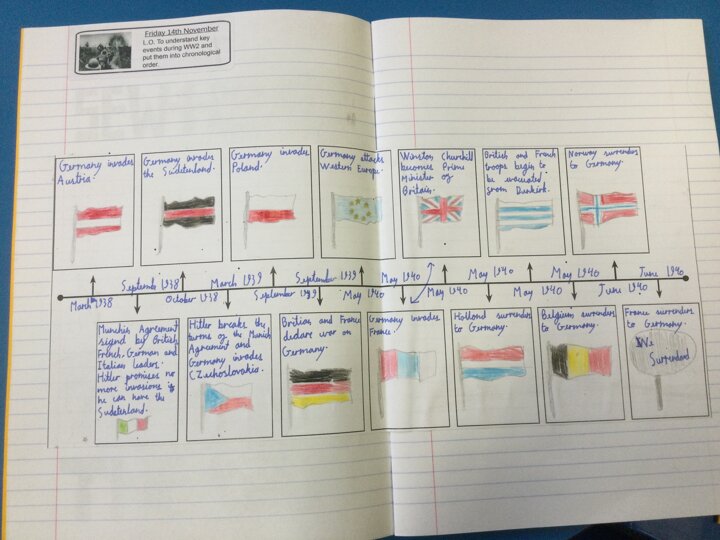 Friday 14th November
L.O. To understand key
events during WW2 and
put them into chronological
order.
Germany invades
Austria.
Germany invades
the Sudetenland.
Germany invades
Poland.
Germany attacks
Western Europe.
Winston Churchill
becomes Prime
Minister of
Britain.
British and French
troops begin to
be evacuated
from Dunkirk.
Norway surrenders
to Germany.
March 1938
September 1938
October 1938
March 1939
September 1939
September 1939
May 1940
May 1940
May 1940
May 1940
May 1940
May 1940
June 1940
June 1940
Munich Agreement
signd by British
French, German and
Italian leaders.
Hitler promises no
more invasions if
he can have the
Sudeterland.
Hitler breaks the
turms of the Munich
Agreement and
Germany invades
Czechoslovakia.
Britian and France
declare war on
Germany.
Germany invades
France.
Holland surrenders
to Germany.
Belgium surrenders
to Germany.
France surrenders
to Germany.
We
Surrendand